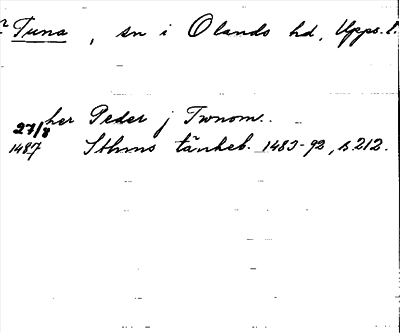 Tuna, sn i Olands hd, Upps. l.
her Peder j Twnom..
27/8
1487 Sthms tänkeb. 1483-92, s. 212.